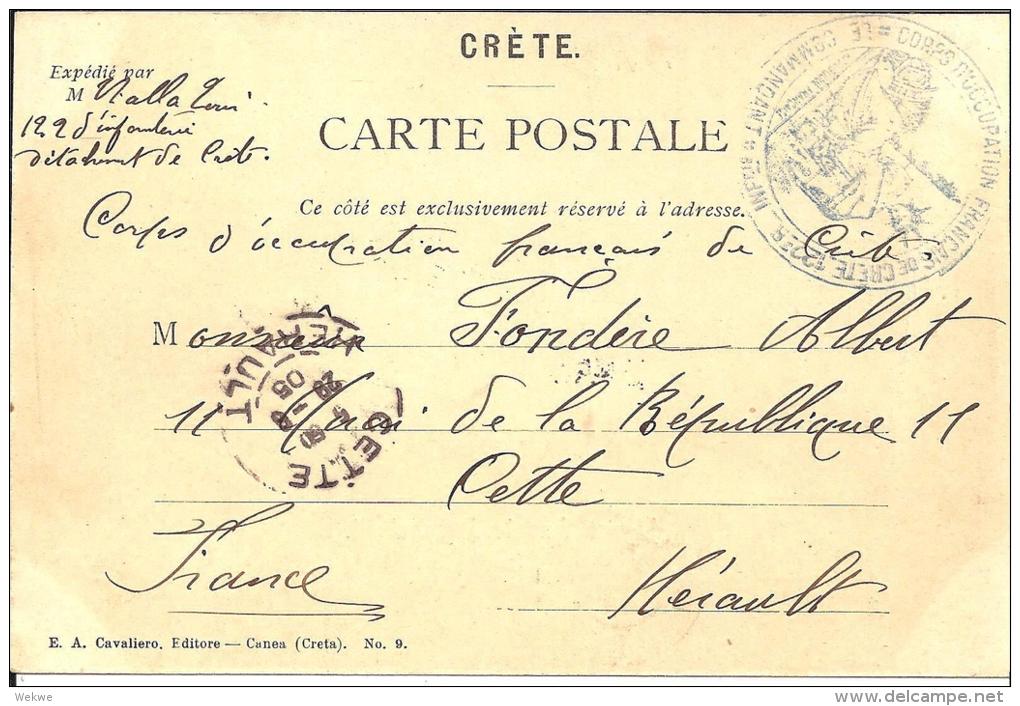 CRÈTE.
Expédié par
M Nalla
122 d'infanterie
détachemt de Crète.
CARTE POSTALE
Ce côté est exclusivement réservé à l'adresse.
Corps d'occupation français de Crète.
Monsieur Fondère Albert
11 Quai de la République 11
Cette
France Hérault
CORPS D'OCCUPATION FRANÇAIS DE CRÈTE
LE COMMANDANT
CETTE
HÉRAULT
05
E. A. Cavaliero, Editore — Canea (Creta). No. 9.
Wekwe
delcampe.net